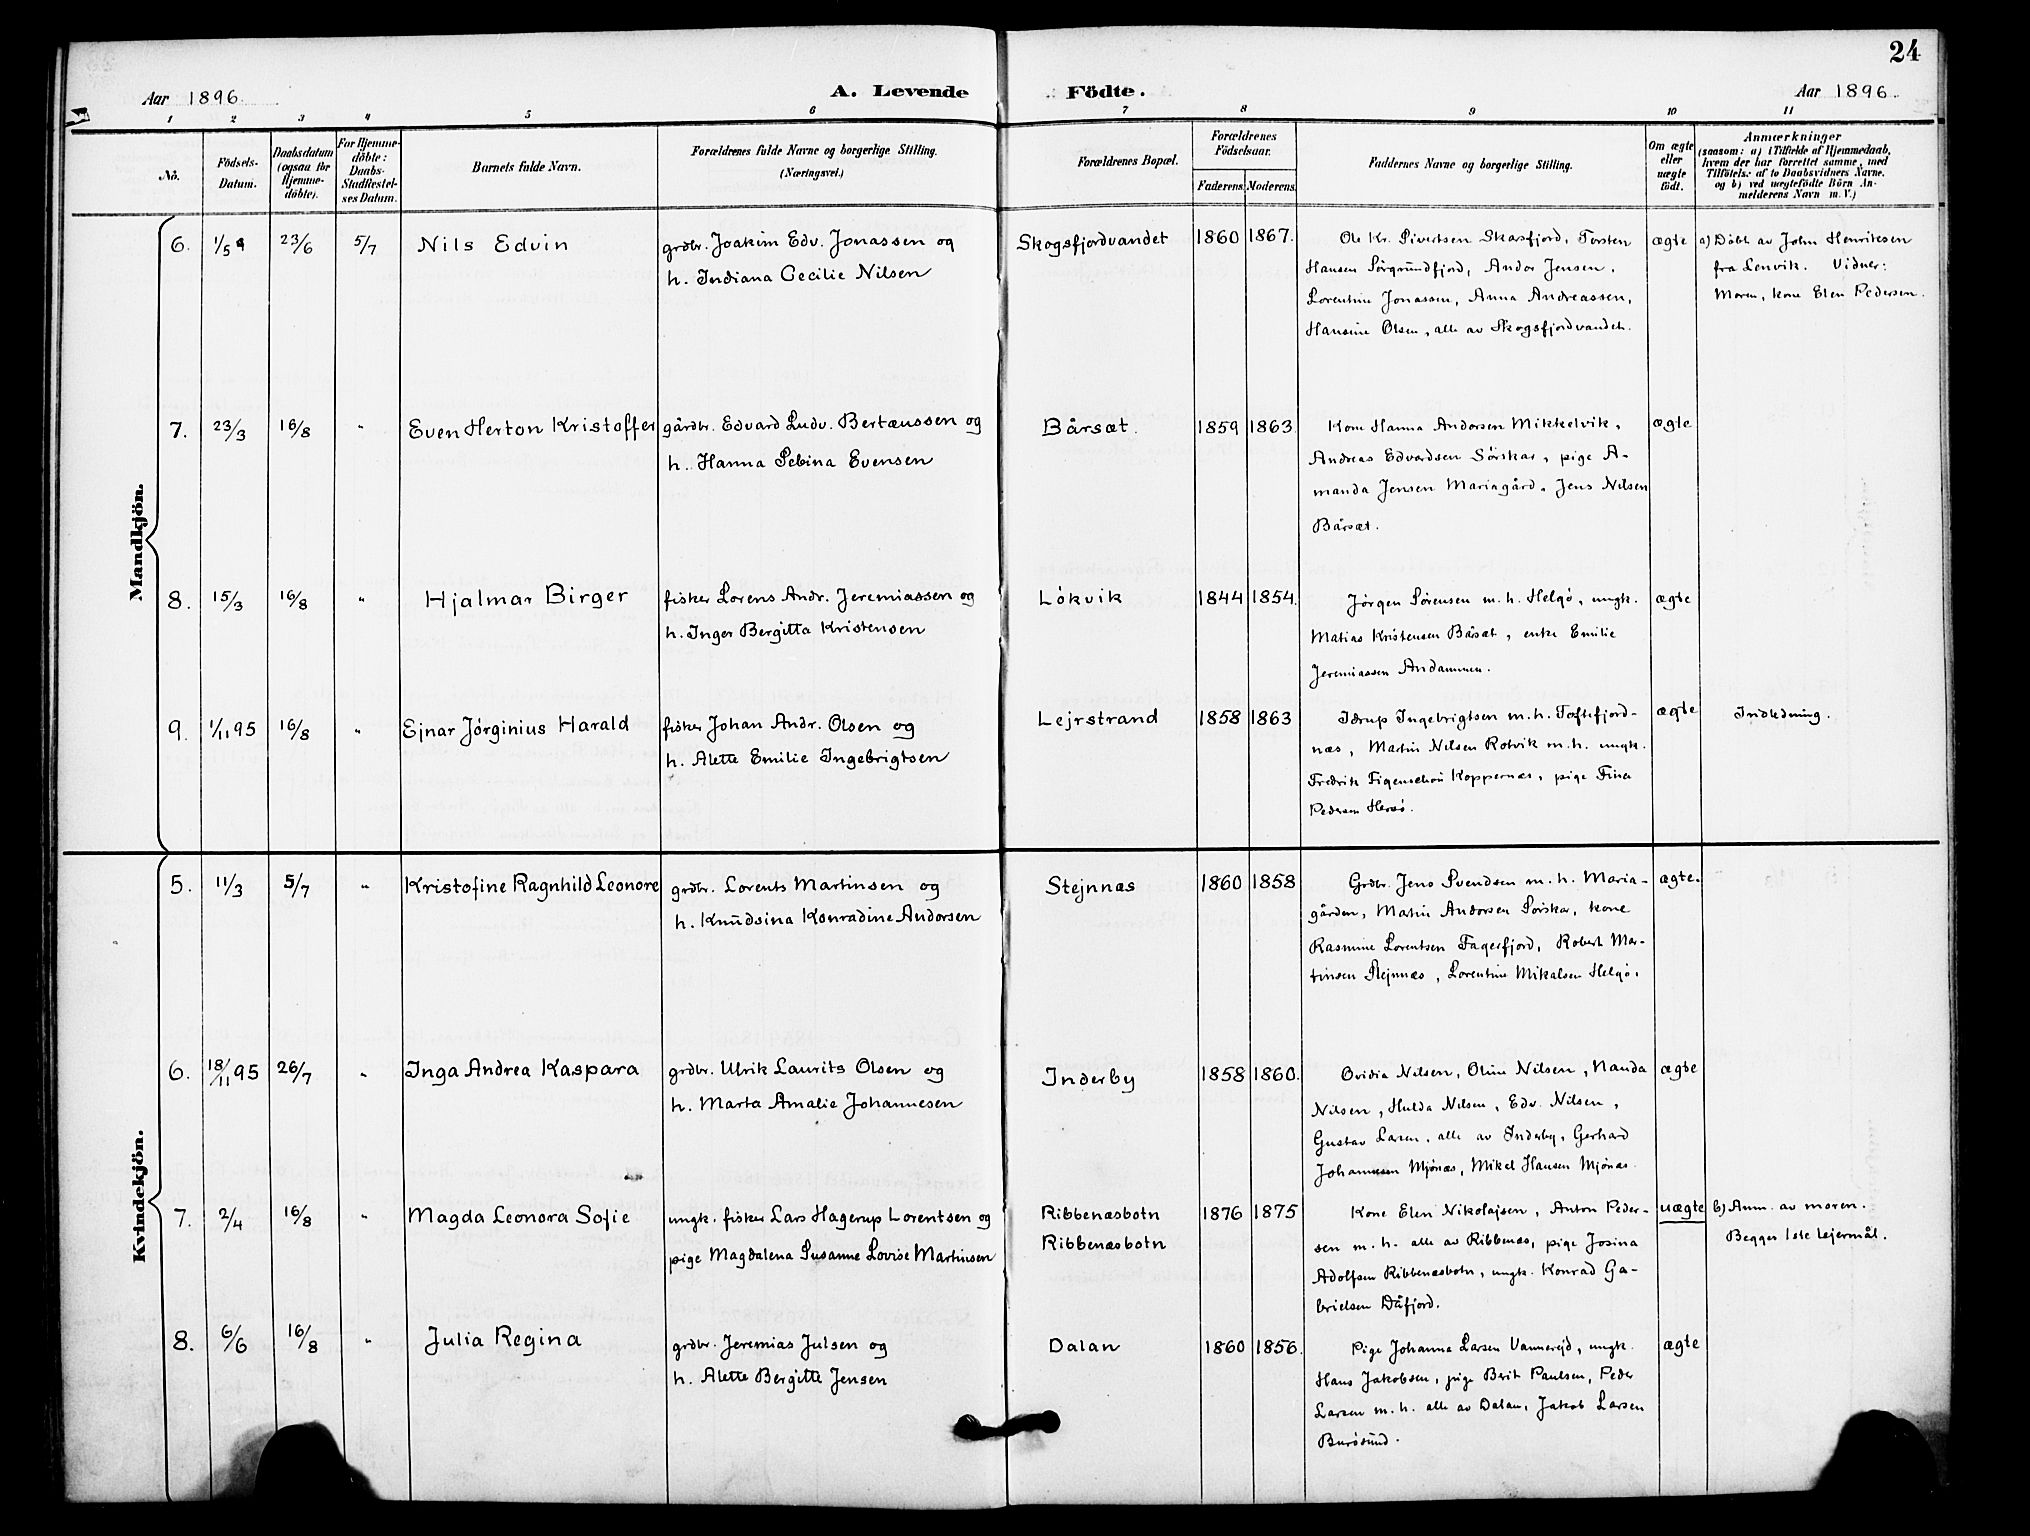 24
Aar 1896. A. Levende Födte. Aar 1896.
1 2 3 4 5 6 7 8 9 10 11
No. Födsels-Datum. Daabsdatum (ogsaa for Hjemme-döbte). For Hjemme-döbte: Daabs-Stadfæstel-ses Datum. Barnets fulde Navn. Forældrenes fulde Navne og borgerlige Stilling. (Næringsvei.) Forældrenes Bopæl. Forældrenes Födselsaar. Faderens. Moderens. Faddernes Navne og borgerlige Stilling. Om ægte eller uægte födt. Anmærkninger (saasom: a) i Tilfælde af Hjemmedaab, hvem der har forrettet samme, med Tilföiels. af to Daabsvidners Navne, og b) ved uægtefödte Börn An-melderens Navn m. V.)
Mandkjön.
6. 1/5 23/6 5/7 Nils Edvin grdbr. Joakim Edv. Jonassen og Skogsfjordvandet 1860 1867. Ole Kr. Sivertsen Skarsfjord, Torsten ægte a) Döbt av John Henriksen
h. Indiana Cecilie Nilsen Hansen Sörgrundfjord, Andor Jensen, fra Lenvik. Vidner:
Lorentine Jonassen, Anna Andreassen, Moren, kone Elen Pedersen.
Hansine Olsen, alle av Skogsfjordvandet.
7. 23/3 16/8 " Even Herton Kristoffer gårdbr. Edvard Ludv. Bertæussen og Bårsæt. 1859 1863. Kone Hanna Andorsen Mikkelvik, ægte
h. Hanna Sebina Evensen Andreas Edvardsen Sörskar, pige A-
manda Jensen Mariagård, Jens Nilsen
Bårsæt.
8. 15/3 16/8 " Hjalmar Birger fisker Lorens Andr. Jeremiassen og Lökvik 1844 1854. Jörgen Sörensen m. h. Helgö, ungk. ægte
h. Inger Bergitta Kristensen Matias Kristensen Bårsæt, enke Emilie
Jeremiassen Andammen.
9. 1/11 95 16/8 " Ejnar Jörginius Harald fisker Johan Andr. Olsen og Lejrstrand 1858 1863 Idrup Ingebrigtsen m. h. Toftefjord- ægte Indledning.
h. Alette Emilie Ingebrigtsen næs, Martin Nilsen Rotvik m. h. ungk.
Fredrik Figenschou Koppernæs, pige Fina
Pedersen
Kvindekjön.
5. 11/3 5/7 " Kristofine Ragnhild Leonore grdbr. Lorents Martinsen og Stejnnæs 1860 1858 Grdbr. Jens Svendsen m. h. Maria- ægte.
h. Knudsina Konradine Andorsen gården, Martin Andorsen Sörskar, kone
Rasmine Lorentsen Fagerfjord, Robert Mar-
tinsen Stejnnæs, Lorentine Mikalsen Helgö.
6. 18/11 95 26/7 " Inga Andrea Kaspara grdbr. Ulrik Laurits Olsen og Inderby 1858 1860. Ovidia Nilsen, Oline Nilsen, Nanda ægte
h. Marta Amalie Johannesen Nilsen, Hulda Nilsen, Edv. Nilsen,
Gustav Larsen, alle av Inderby, Gerhard
Johannesen Mjönæs, Mikel Hansen Mjönæs.
7. 2/4 16/8 " Magda Leonora Sofie ungk. fisker Lars Hagerup Lorentsen og Ribbenæsbotn 1876 1875 Kone Elen Nikolajsen, Anton Peder- uægte b) Anm. av moren.
pige Magdalena Susanne Lovise Martinsen Ribbenæsbotn sen m. h. alle av Ribbenæs, pige Josina Begges 1ste Lejermål.
Adolfsen Ribbenæsbotn, ungk. Konrad Ga-
brielsen Dåfjord.
8. 6/6 16/8 " Julia Regina grdbr. Jeremias Julsen og Dalan 1860 1856. Pige Johanna Larsen Vannerejd, ungk. ægte
h. Alette Bergitte Jensen Hans Jakobsen, pige Berit Paulsen, Peder
Larsen m. h. alle av Dalan, Jakob Larsen
Burösund.